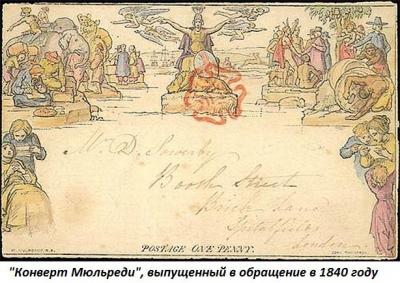 Mr. D. Sowerby
Booth Street
Brick Lane
Spitalfields
London
W. MULREADY, R.A.
JOHN THOMPSON
POSTAGE ONE PENNY.
"Конверт Мюльреди", выпущенный в обращение в 1840 году